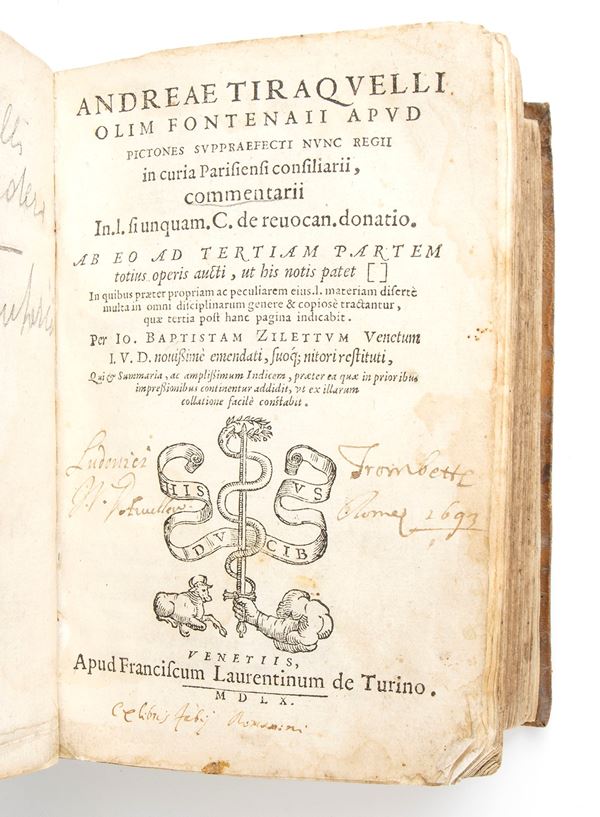 ANDREAE TIRAQVELLI
OLIM FONTENAII APVD
PICTONES SVPPRAEFECTI NVNC REGII
in curia Parisiensi consiliarii,
commentarii
In.l. si unquam. C. de reuocan. donatio.
AB EO AD TERTIAM PARTEM
totius operis aucti, ut his notis patet [ ]
In quibus præter propriam ac peculiarem eius.l. materiam disertè
multa in omni disciplinarum genere & copiosè tractantur,
quæ tertia post hanc pagina indicabit.
Per IO. BAPTISTAM ZILETTVM Venetum
I. V. D. nouissimè emendati, suoq; nitori restituti,
Qui & Summaria, ac amplissimum Indicem, præter ea quæ in prioribus
impressionibus continentur addidit, vt ex illarum
collatione facilè constabit.
Ludovici Trombette
Rome 1693
HIS DVCIBVS
VENETIIS,
Apud Franciscum Laurentinum de Turino.
MDLX.
Ex libris Romanini